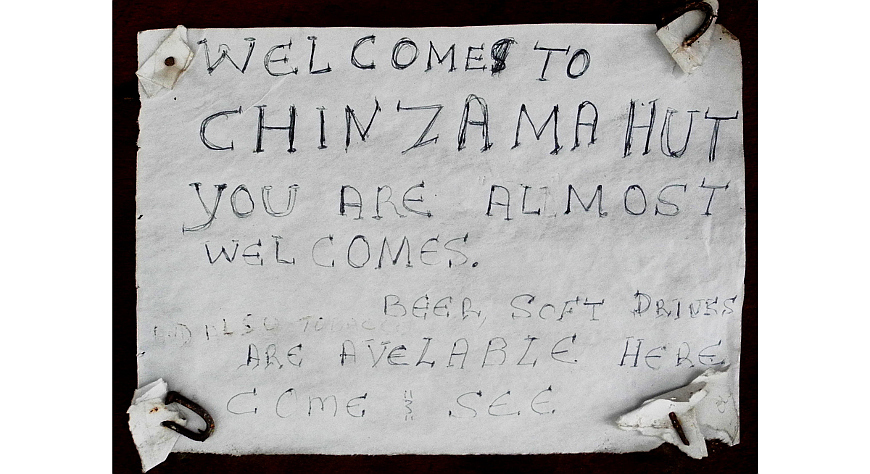 WELCOMES TO
CHINZAMA HUT
YOU ARE ALMOST
WELCOMES.
BEER, SOFT DRINKS
AND ALSO TOBACCO
ARE AVELABLE HERE
COME & SEE